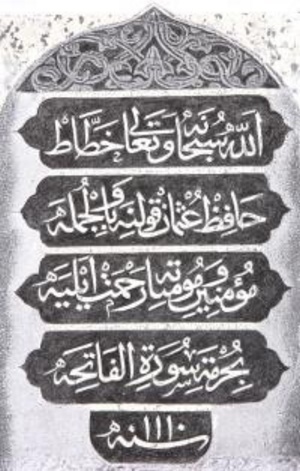 الله سبحانه وتعالى خطاط
حافظ عثمان قولنه باق و جمله
مؤمنين و مؤمناته رحمت ايليه
بحرمة سورة الفاتحه
سنه ١١١٠